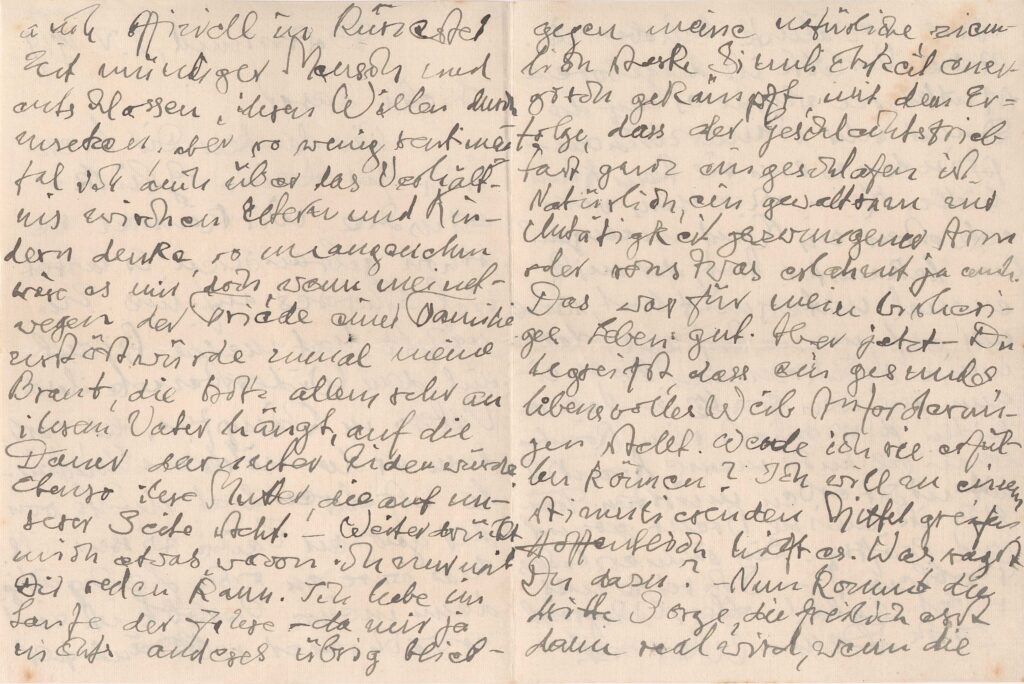 auch offiziell in kürzester
Zeit mündiger Mensch und
entschlossen, ihren Willen durch
zusetzen. Aber so wenig sentimen
tal ich auch über das Verhält-
nis zwischen Eltern und Kin-
dern denke, so unangenehm
wäre es mir doch, wenn meinet-
wegen der Friede einer Familie
zerstört würde zumal meine
Braut, die trotz allem sehr an
ihrem Vater hängt, auf die
Dauer darunter leiden würde
Ebenso ihre Mutter, die auf un-
serer Seite steht. – Weiter drückt
mich etwas, wovon ich nur mit
Dir reden kann. Ich habe im
Laufe der Jahre – da mir ja
nichts anderes übrig blieb –
gegen meine natürliche ziem-
lich starke Sinnlichkeit ener-
gisch gekämpft mit dem Er-
folge, dass der Geschlechtstrieb
fast ganz eingeschlafen ist.
Natürlich, ein gewaltsam zur
Untätigkeit gezwungener Arm
oder sonst was erlahmt ja auch.
Das war für mein bisheri-
ges Leben gut. Aber jetzt – Du
begreifst, dass ein gesundes
lebensvolles Weib Anforderun-
gen stellt. Werde ich sie erfül-
len können? Ich will zu einem
stimulierenden Mittel greifen
Hoffentlich hilft es. Was sagst
Du dazu? – Nun kommt die
dritte Sorge, die freilich erst
dann real wird, wenn die